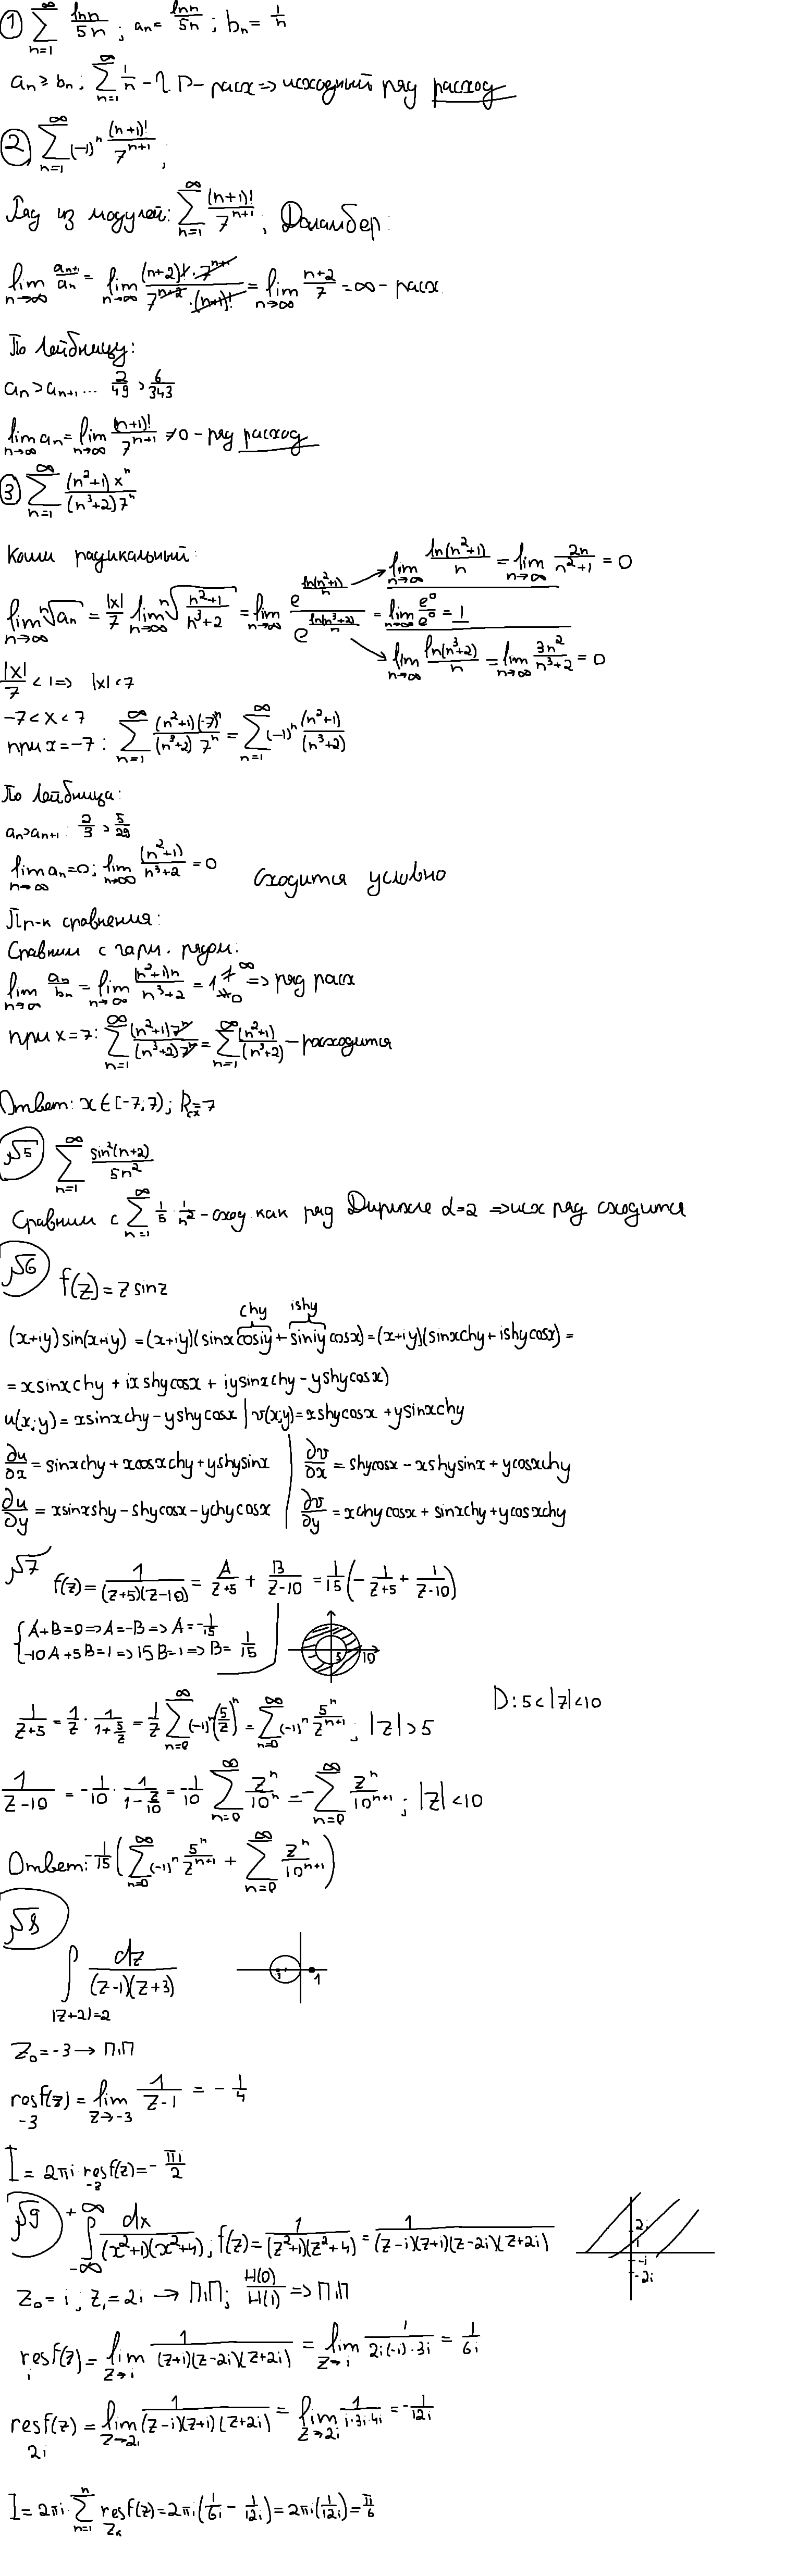 ① ∑_{n=1}^{∞} ln n / 5n ; a_n = ln n / 5n ; b_n = 1/n
a_n ≥ b_n ; ∑_{n=1}^{∞} 1/n – расх ⇒ исходный ряд расход
② ∑_{n=1}^{∞} (-1)^n (n+1)! / 7^{n+1} ;
Ряд из модулей: ∑_{n=1}^{∞} (n+1)! / 7^{n+1} ; Даламбер:
lim_{n→∞} a_{n+1}/a_n = lim_{n→∞} (n+2)! · 7^{n+1} / 7^{n+2} · (n+1)! = lim_{n→∞} (n+2)/7 = ∞ – расх.
По Лейбницу:
a_n > a_{n+1} ... 2/49 > 6/343
lim_{n→∞} a_n = lim_{n→∞} (n+1)! / 7^{n+1} ≠ 0 – ряд расход
③ ∑_{n=1}^{∞} (n²+1) x^n / (n³+2) 7^n
Коши радикальный:
lim_{n→∞} ln(n²+1)/n = lim_{n→∞} 2n/(n²+1) = 0
lim_{n→∞} ⁿ√a_n = |x|/7 lim_{n→∞} ⁿ√((n²+1)/(n³+2)) = lim_{n→∞} e^{ln(n²+1)/n} / e^{ln(n³+2)/n} = lim_{n→∞} e⁰/e⁰ = 1
lim_{n→∞} ln(n³+2)/n = lim_{n→∞} 3n²/(n³+2) = 0
|x|/7 < 1 ⇒ |x| < 7
-7 < x < 7
при x = -7 : ∑_{n=1}^{∞} (n²+1)(-7)^n / (n³+2) 7^n = ∑_{n=1}^{∞} (-1)^n (n²+1)/(n³+2)
По Лейбница:
a_n > a_{n+1} : 2/3 > 5/29
lim_{n→∞} a_n = 0 ; lim_{n→∞} (n²+1)/(n³+2) = 0 Сходится условно
Пр-к сравнения:
Сравним с гарм. рядом:
lim_{n→∞} a_n/b_n = lim_{n→∞} (n²+1)n/(n³+2) = 1 ≠ ∞ ≠ 0 ⇒ ряд расх
при x = 7 : ∑_{n=1}^{∞} (n²+1)7^n / (n³+2)7^n = ∑_{n=1}^{∞} (n²+1)/(n³+2) – расходится
Ответ: x ∈ [-7; 7) ; R_{сх} = 7
№5 ∑_{n=1}^{∞} sin²(n+2) / 5n²
Сравним с ∑_{n=1}^{∞} 1/5 · 1/n² – сход. как ряд Дирихле α=2 ⇒ исх ряд сходится
№6 f(z) = z sin z
chy ishy
(x+iy) sin(x+iy) = (x+iy)(sinx cosiy + siniy cosx) = (x+iy)(sinxchy + ishycosx) =
= xsinxchy + ixshycosx + iysinxchy – yshycosx)
u(x;y) = xsinxchy – yshycosx | v(x;y) = xshycosx + ysinxchy
∂u/∂x = sinxchy + xcosxchy + yshysinx | ∂v/∂x = shycosx – xshysinx + ycosxchy
∂u/∂y = xsinxshy – shycosx – ychycosx | ∂v/∂y = xchycosx + sinxchy + ycosxchy
№7 f(z) = 1/(z+5)(z-10) = A/(z+5) + B/(z-10) = 1/15 (- 1/(z+5) + 1/(z-10))
{ A+B=0 ⇒ A=-B ⇒ A = -1/15
-10A+5B=1 ⇒ 15B=1 ⇒ B = 1/15
5 10
D: 5<|z|<10
1/(z+5) = 1/z · 1/(1+5/z) = 1/z ∑_{n=0}^{∞} (-1)^n (5/z)^n = ∑_{n=0}^{∞} (-1)^n 5^n/z^{n+1} ; |z| > 5
1/(z-10) = -1/10 · 1/(1-z/10) = -1/10 ∑_{n=0}^{∞} z^n/10^n = -∑_{n=0}^{∞} z^n/10^{n+1} ; |z| < 10
Ответ: -1/15 (∑_{n=0}^{∞} (-1)^n 5^n/z^{n+1} + ∑_{n=0}^{∞} z^n/10^{n+1})
№8
∫_{|z+2|=2} dz / (z-1)(z+3)
1
z₀ = -3 → П.П
res f(z)_{-3} = lim_{z→-3} 1/(z-1) = -1/4
I = 2πi · res f(z)_{-3} = - πi/2
№9 ∫_{-∞}^{+∞} dx/(x²+1)(x²+4), f(z) = 1/(z²+1)(z²+4) = 1/(z-i)(z+i)(z-2i)(z+2i)
2i
i
-i
-2i
z₀ = i ; z₁ = 2i → П.П ; H(0)/H(1) ⇒ П.П
res f(z)_{i} = lim_{z→i} 1/(z+i)(z-2i)(z+2i) = lim_{z→i} 1/2i(-i)·3i = 1/6i
res f(z)_{2i} = lim_{z→2i} 1/(z-i)(z+i)(z+2i) = lim_{z→2i} 1/i·3i·4i = -1/12i
I = 2πi · ∑_{n=1}^{n} res f(z)_{z_k} = 2πi (1/6i - 1/12i) = 2πi (1/12i) = π/6